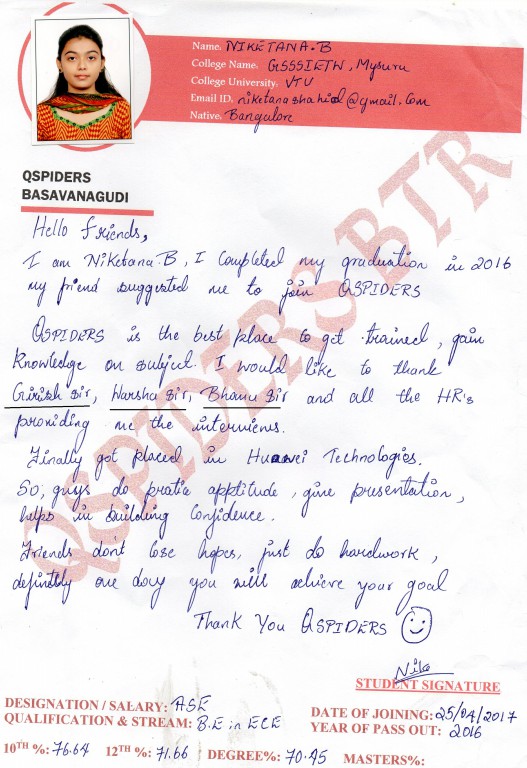 Name. NIKETANA.B
College Name. GSSSIETW, Mysuru
College University. VTU
Email ID. niketanashahid@gmail.com
Native. Bangalore
QSPIDERS
BASAVANAGUDI
QSPIDERS BTR
Hello friends,
I am Niketana.B, I Completed my graduation in 2016
my friend suggested me to join QSPIDERS
QSPIDERS is the best place to get trained, gain
knowledge on subject. I would like to thank
Girish sir, Harsha sir, Bhanu sir and all the HR's
providing me the interviews.
Finally got placed in Huawei Technologies.
So, guys do pratie apptitude, give presentation,
helps in building Confidence.
Friends don't lose hopes, just do hardwork,
definitly one day you will achieve your goal
THANK YOU QSPIDERS
Nike
STUDENT SIGNATURE
DESIGNATION / SALARY: ASE
QUALIFICATION & STREAM: B.E in ECE
DATE OF JOINING: 25/04/2017
YEAR OF PASS OUT: 2016
10TH %: 76.64 12TH %: 71.66 DEGREE%: 70.45 MASTERS%: